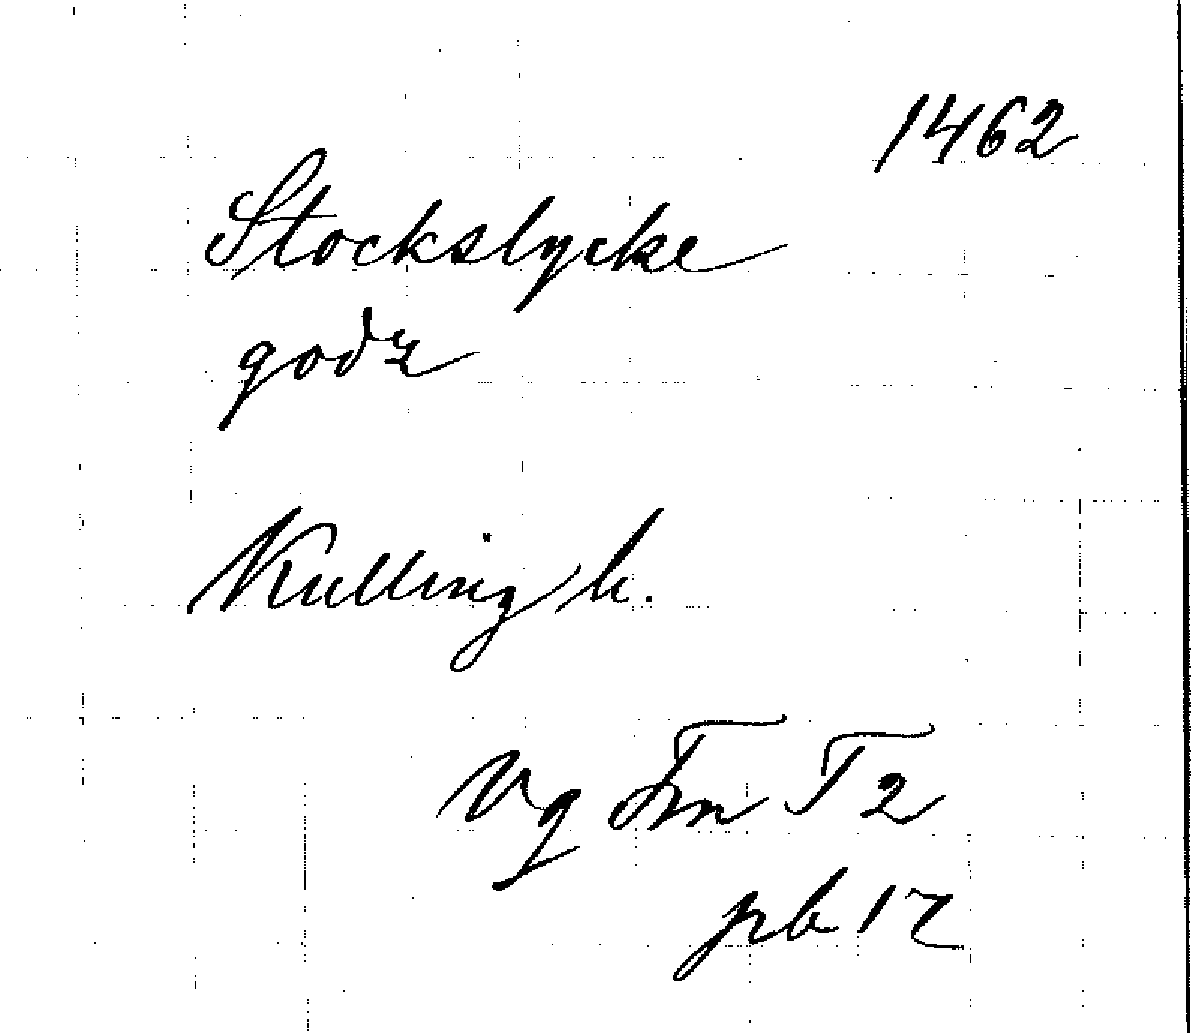 1462
Stockslycke
godz
Kulling h.
Vg Fm T 2
pb 12